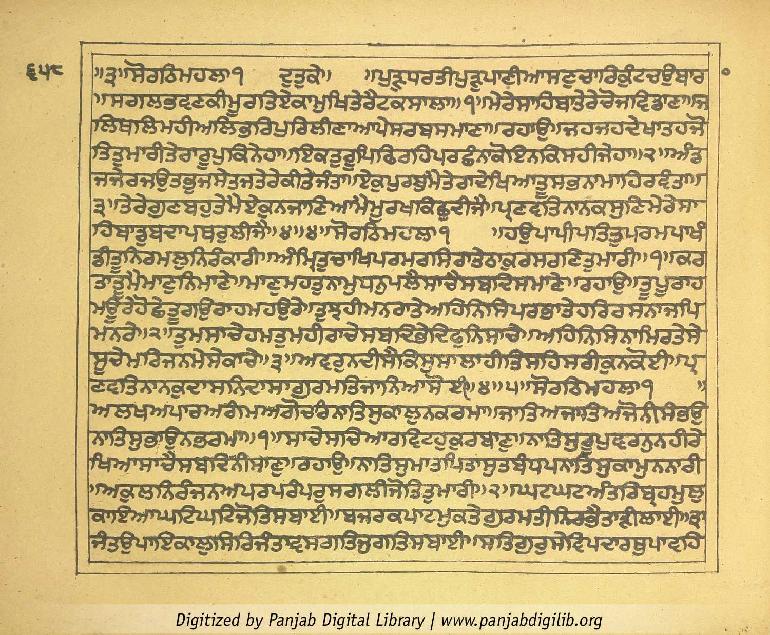 ੬੫੮
॥੩॥ ਸੋਰਠਿਮਹਲਾ੧ ਦੁਤੁਕੇ॥ ॥ਪੁੜੁਧਰਤੀਪੁੜੁਪਾਣੀਆਸਣੁਚਾਰਿਕੁੰਟਚਉਬਾਰ
॥ਸਗਲਭਵਣਕੀਮੂਰਤਿਏਕਾਮੁਖਿਤੇਰੈਟਕਸਾਲਾ॥੧॥ਮੇਰੇਸਾਹਿਬਾਤੇਰੇਚੋਜਵਿਡਾਣਾ॥ਜ
ਲਿਥਲਿਮਹੀਅਲਿਭਰਿਪੁਰਿਲੀਣਾਆਪੇਸਰਬਸਮਾਣਾ॥ਰਹਾਉ॥ਜਹਜਹਦੇਖਾਤਹਜੋ
ਤਿਤੁਮਾਰੀਤੇਰਾਰੂਪੁਕਿਨੇਹਾ॥ਇਕਤੁਰੂਪਿਫਿਰਹਿਪਰਛੰਨਾਕੋਇਨਕਿਸਹੀਜੇਹਾ॥੨॥ਅੰਡ
ਜਜੇਰਜਉਤਭੁਜਸੇਤਜਤੇਰੇਕੀਤੇਜੰਤਾ॥ਏਕੁਪੁਰਬੁਮੈਤੇਰਾਦੇਖਿਆਤੂਸਭਨਾਮਾਹਿਰਵੰਤਾ॥
੩॥ਤੇਰੇਗੁਣਬਹੁਤੇਮੈਏਕੁਨਜਾਣਿਆਮੈਮੂਰਖਕਿਛੁਦੀਜੈ॥ਪ੍ਰਣਵਤਿਨਾਨਕਸੁਣਿਮੇਰੇਸਾ
ਹਿਬਾਡੁਬਦਾਪਥਰੁਲੀਜੈ॥੪॥੪॥ਸੋਰਠਿਮਹਲਾ੧ ॥ਹਉਪਾਪੀਪਤਿਤੁਪਰਮਪਾਖੰ
ਡੀਤੂਨਿਰਮਲੁਨਿਰੰਕਾਰੀ॥ਅੰਮ੍ਰਿਤੁਚਾਖਿਪਰਮਰਸਿਰਾਤੇਠਾਕੁਰਸਰਣਿਤੁਮਾਰੀ॥੧॥ਕਰ
ਤਾਤੂਮੈਮਾਣੁਨਿਮਾਣੇ॥ਮਾਣੁਮਹਤੁਨਾਮੁਧਨੁਪਲੈਸਾਚੈਸਬਦਿਸਮਾਣੇ॥ਰਹਾਉ॥ਤੂਪੂਰਾਹ
ਮਊਰੇਹੋਛੇਤੂਗਉਰਾਹਮਹਉਰੇ॥ਤੁਝਹੀਮਨਰਾਤੇਅਹਿਨਿਸਿਪਰਭਾਤੇਹਰਿਰਸਨਾਜਪਿ
ਮਨਰੇ॥੨॥ਤੁਮਸਾਚੇਹਮਤੁਮਹੀਰਾਚੇਸਬਦਿਭੇਦਿਫੁਨਿਸਾਚੇ॥ਅਹਿਨਿਸਿਨਾਮਿਰਤੇਸੇ
ਸੂਚੇਮਰਿਜਨਮੇਸੇਕਾਚੇ॥੩॥ਅਵਰੁਨਦੀਸੈਕਿਸੁਸਾਲਾਹੀਤਿਸਹਿਸਰੀਕੁਨਕੋਈ॥ਪ੍ਰ
ਣਵਤਿਨਾਨਕੁਦਾਸਨਿਦਾਸਾਗੁਰਮਤਿਜਾਨਿਆਸੋਈ॥੪॥੫॥ਸੋਰਠਿਮਹਲਾ੧ ॥
ਅਲਖਅਪਾਰਅਗੰਮਅਗੋਚਰਿਨਾਤਿਸੁਕਾਲੁਨਕਰਮਾ॥ਜਾਤਿਅਜਾਤਿਅਜੋਨੀਸੰਭਉ
ਨਾਤਿਸੁਭਾਉਨਭਰਮਾ॥੧॥ਸਾਚੇਸਾਚਿਆਰਵਿਟਹੁਕੁਰਬਾਣੁ॥ਨਾਤਿਸੁਰੂਪੁਵਰਨੁਨਹੀਰੇ
ਖਿਆਸਾਚੈਸਬਦਿਨੀਸਾਣੁ॥ਰਹਾਉ॥ਨਾਤਿਸੁਮਾਤਪਿਤਾਸੁਤਬੰਧਪਨਾਤਿਸੁਕਾਮੁਨਨਾਰੀ
॥ਅਕੁਲਨਿਰੰਜਨਅਪਰਪਰੰਪਰੁਸਗਲੀਜੋਤਿਤੁਮਾਰੀ॥੨॥ਘਟਘਟਅੰਤਰਿਬ੍ਰਹਮੁਲੁ
ਕਾਇਆਘਟਿਘਟਿਜੋਤਿਸਬਾਈ॥ਬਜਰਕਪਾਟਮੁਕਤੇਗੁਰਮਤੀਨਿਰਭੈਤਾੜੀਲਾਈ॥੩॥
ਜੰਤਉਪਾਇਕਾਲੁਸਿਰਿਜੰਤਾਵਸਗਤਿਜੁਗਤਿਸਬਾਈ॥ਸਤਿਗੁਰੁਸੇਵਿਪਦਾਰਥੁਪਾਵਹਿ
Digitized by Panjab Digital Library | www.panjabdigilib.org